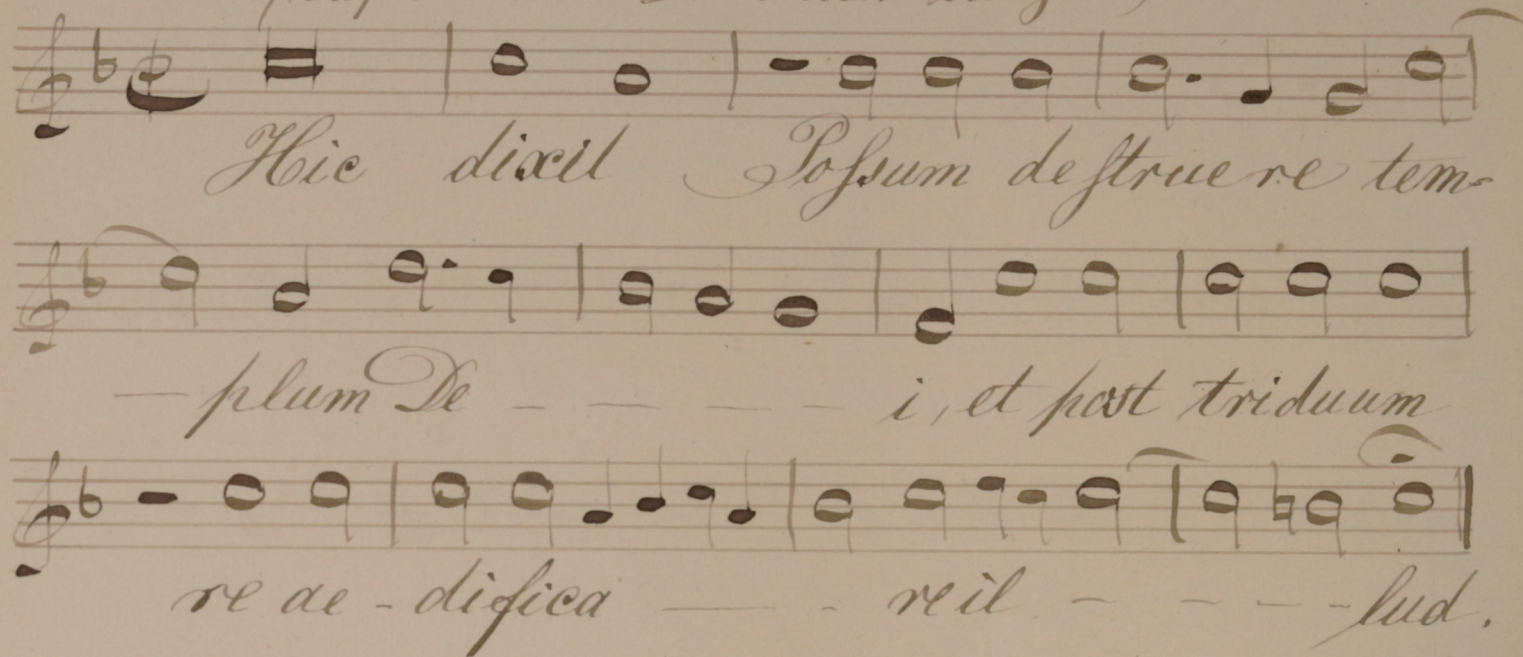 Hic dixit Poſsum deſtruere tem-
— plum De - - - - i, et post triduum
re ae - difica — - re il - - - - lud.